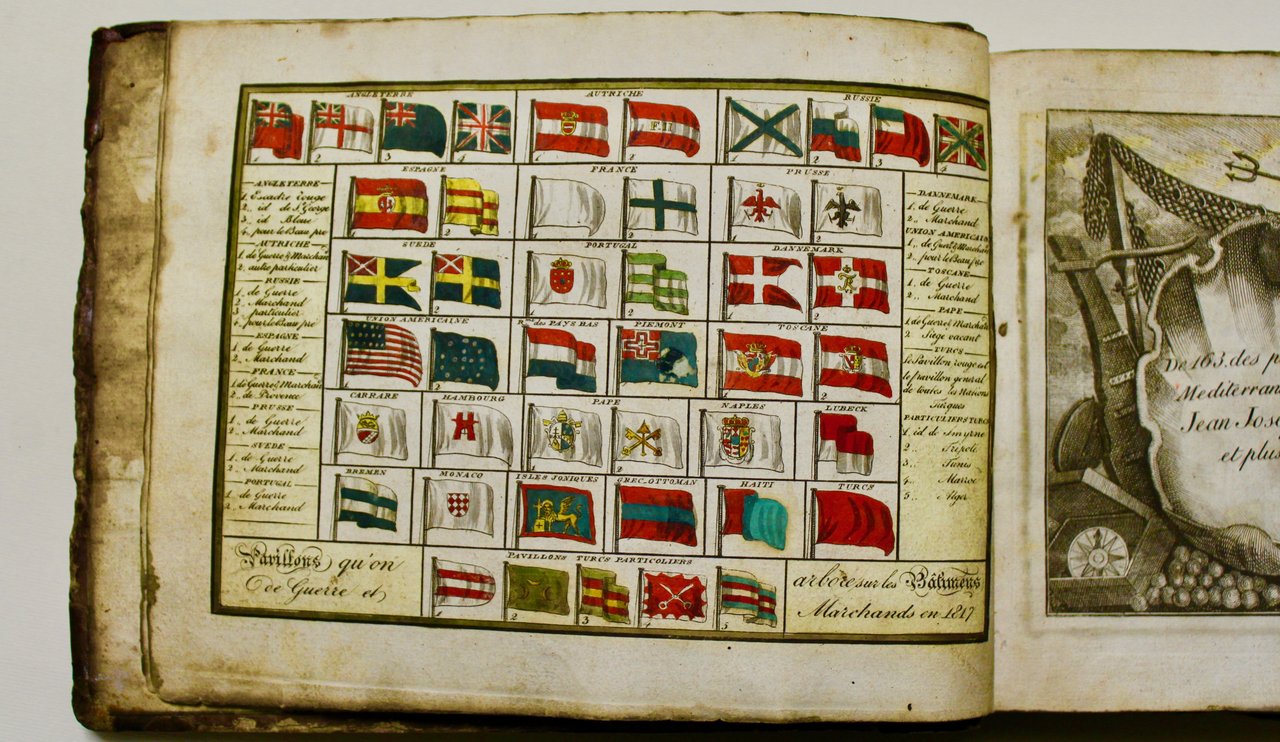 ANGLETERRE
AUTRICHE
RUSSIE
1 2 3 4 1 2 1 2 3 4
ESPAGNE
FRANCE
PRUSSE
1 2 1 2 1 2
SUEDE
PORTUGAL
DANNEMARK
1 2 1 2 1 2
UNION AMERICAINE
R.me des PAYS BAS
PIEMONT
TOSCANE
1 2 1 2
CARRARE
HAMBOURG
PAPE
NAPLES
LUBECK
1 2
BREMEN
MONACO
ISLES JONIQUES
GREC_OTTOMAN
HAITI
TURCS
PAVILLONS TURCS PARTICOLIERS
1 2 3 4 5
ANGLETERRE
1, Escadre rouge
2, id de St George
3, id Bleu
4, pour le Beau pré
AUTRICHE
1, de Guerre & Marchan
2, autre particulier
RUSSIE
1, de Guerre
2, Marchand
3, particulier
4, pour le Beau pré
ESPAGNE
1, de Guerre
2, Marchand
FRANCE
1, de Guerre & Marchan
2, de Provence
PRUSSE
1, de Guerre
2, Marchand
SUEDE
1, de Guerre
2, Marchand
PORTUGAL
1, de Guerre
2, Marchand
DANNEMARK
1, de Guerre
2, Marchand
UNION AMERICAIN
1, de Guer & March
2, pour le Beau pré
TOSCANE
1, de Guerre
2, Marchand
PAPE
1, de Guerre & March
2, Siege vacant
TURCS
Le Pavillon rouge est
le pavillon general
de toutes les Nations
Turques
PARTICULIERS TURCS
1, id de Smyrne
2, Tripoli
3, Tunis
4, Maroc
5, Alger
Pavillons qu'on
de Guerre et
arbore sur les Bâtimens
Marchands en 1817
De 163. des p
Mediterran
Jean Jos
et plus